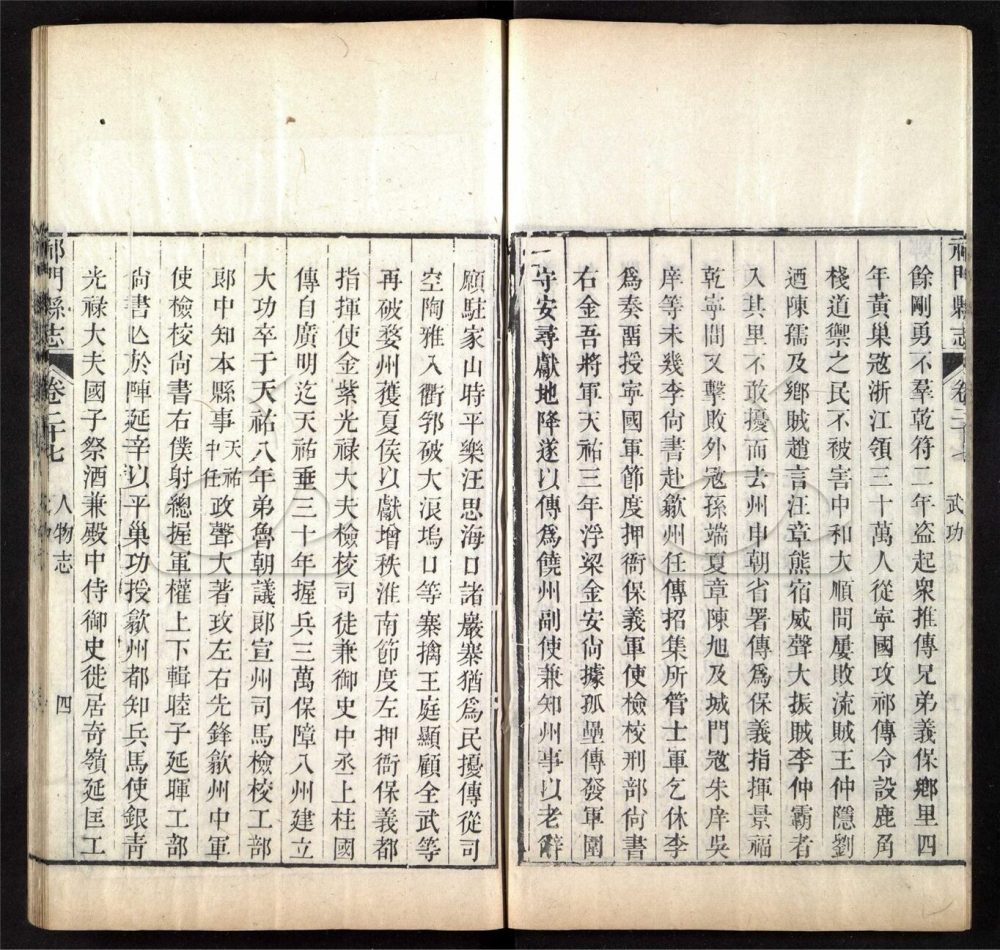 餘剛勇不羣乾符二年盜起衆推傳兄弟義保鄉里四
年黃巢寇浙江領三十萬人從寧國攻祁傳令設鹿角
棧道禦之民不被害中和大順間屢敗流賊王仲隱劉
迺陳孺及鄉賊趙言汪章熊宿威聲大振賊李仲霸者
入其里不敢擾而去州申朝省署傳爲保義指揮景福
乾寧間又擊敗外寇孫端夏章陳旭及城門寇朱庠吳
庠等未幾李尚書赴歙州任傳招集所管士軍乞休李
爲奏畱授寧國軍節度押衙保義軍使檢校刑部尚書
右金吾將軍天祐三年浮梁金安尚據孤壘傳發軍圍
守安尋獻地降遂以傳爲饒州副使兼知州事以老辭
祁門縣志 卷二十七 武功
願駐家山時平樂汪思海口諸巖寨猶爲民擾傳從司
空陶雅入衢邠破大浪塢口等寨擒王庭顯顧全武等
再破婺州獲夏侯以獻增秩淮南節度左押衙保義都
指揮使金紫光祿大夫檢校司徒兼御史中丞上柱國
傳自廣明迄天祐垂三十年握兵三萬保障八州建立
大功卒于天祐八年弟魯朝議郎宣州司馬檢校工部
郎中知本縣事天祐中任政聲大著玫左右先鋒歙州中軍
使檢校尚書右僕射總握軍權上下輯睦子延暉工部
尚書歿於陣延辛以平巢功授歙州都知兵馬使銀青
光祿大夫國子祭酒兼殿中侍御史徙居奇嶺延匡工
祁門縣志 卷二十七 人物志 四